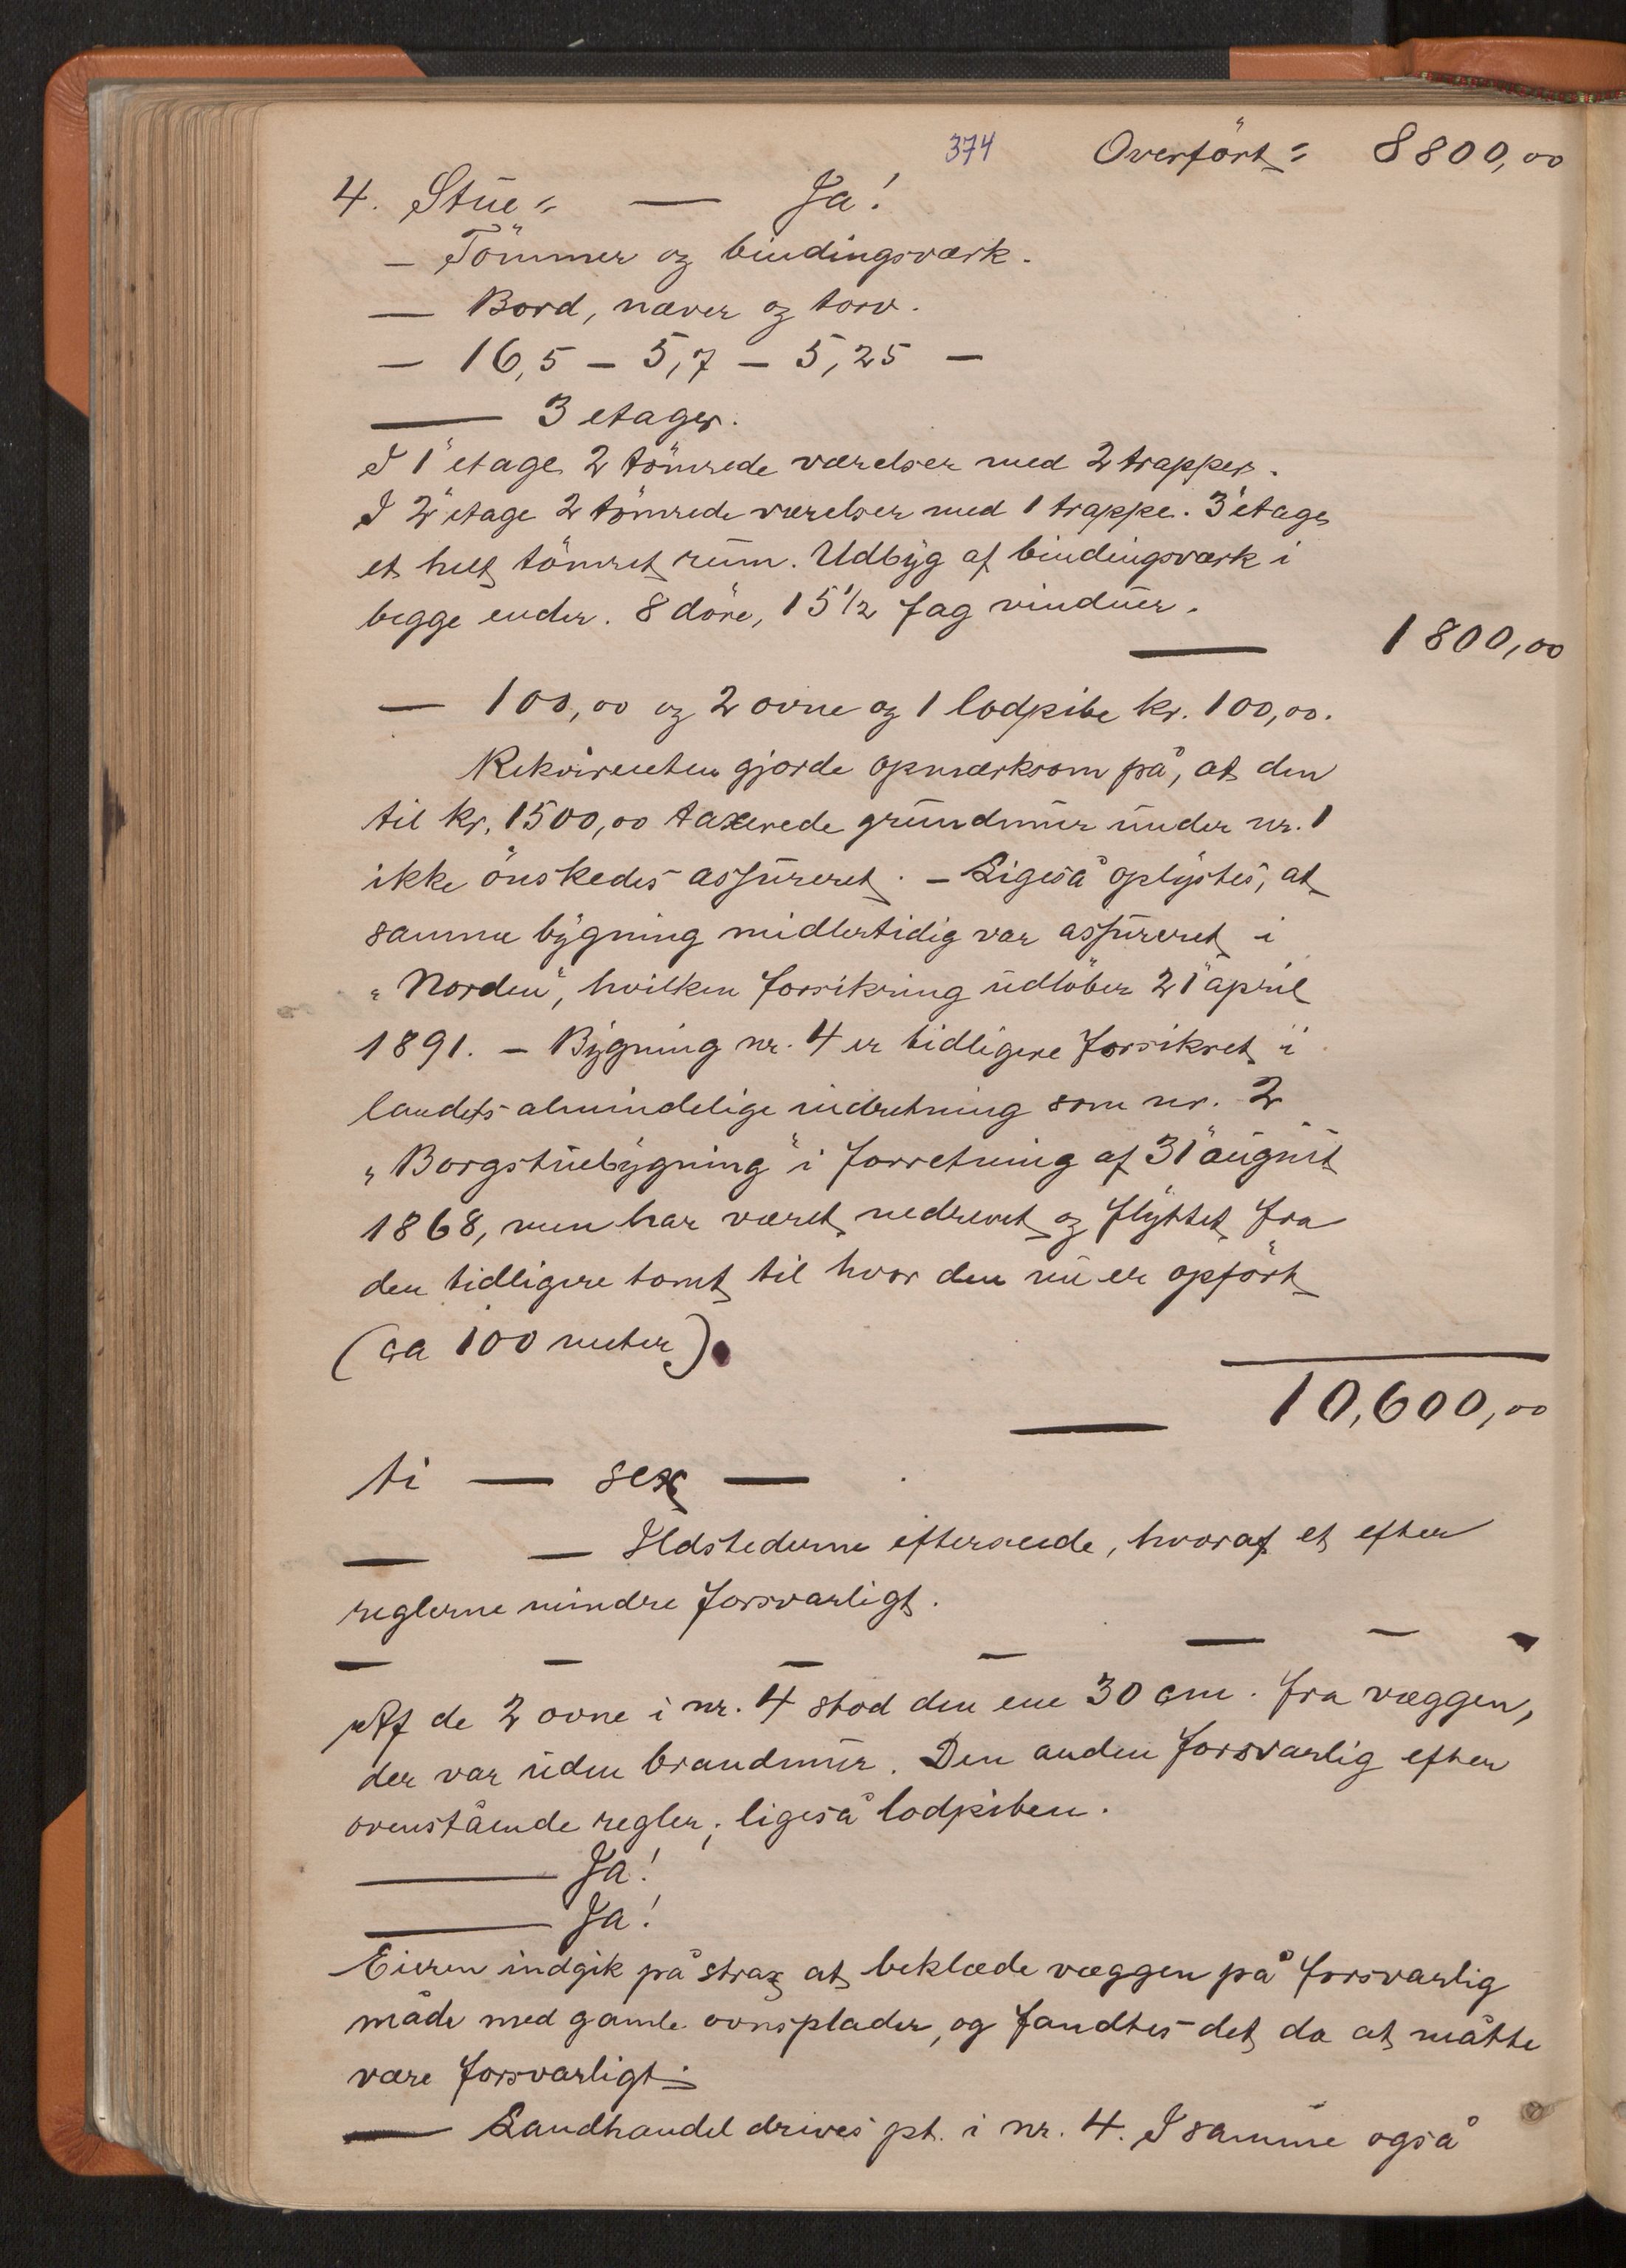 374 Overført = 8800,00
4. Stue = — Ja!
— Tömmer og bindingsværk.
— Bord, næver og torv.
— 16,5 — 5,7 — 5,25 —
— 3 etager.
I 1" etage 2 tömrede værelser med 2 trapper.
I 2" etage 2 tömrede værelser med 1 trappe. 3" etage
et helt tömret rum. Udbyg af bindingsværk i
begge ender. 8 döre, 15 1/2 fag vinduer.
— 1800,00
— 100,00 og 2 ovne og 1 lodpibe kr. 100,00.
Rekvirenten gjorde opmærksom på, at den
til kr. 1500,00 taxerede grundmur under nr. 1
ikke önskedes assureret. — Ligeså oplystes, at
samme bygning midlertidig var assureret i
"Norden", hvilken forsikring udlöber 21" april
1891. — Bygning nr. 4 er tidligere forsikret i
landets almindelige indretning som nr. 2
"Borgstuebygning" i forretning af 31" august
1868, men har været nedrevet og flyttet fra
den tidligere tomt til hvor den nu er opfört
(ca 100 meter).
— 10,600,00
ti — sex —
— — Ildstederne eftersaaede, hvoraf et efter
reglerne mindre forsvarligt.
— — — — — — —
Af de 2 ovne i nr. 4 stod den ene 30 cm. fra væggen,
der var uden brandmur. Den anden forsvarlig efter
ovenstående regler; ligeså lodpiben.
— Ja!
— Ja!
Eieren indgik på strax at beklæde væggen på forsvarlig
måde med gamle ovnsplader, og fandtes det da at måtte
være forsvarligt.
— Landhandel drives pt. i nr. 4. I samme også